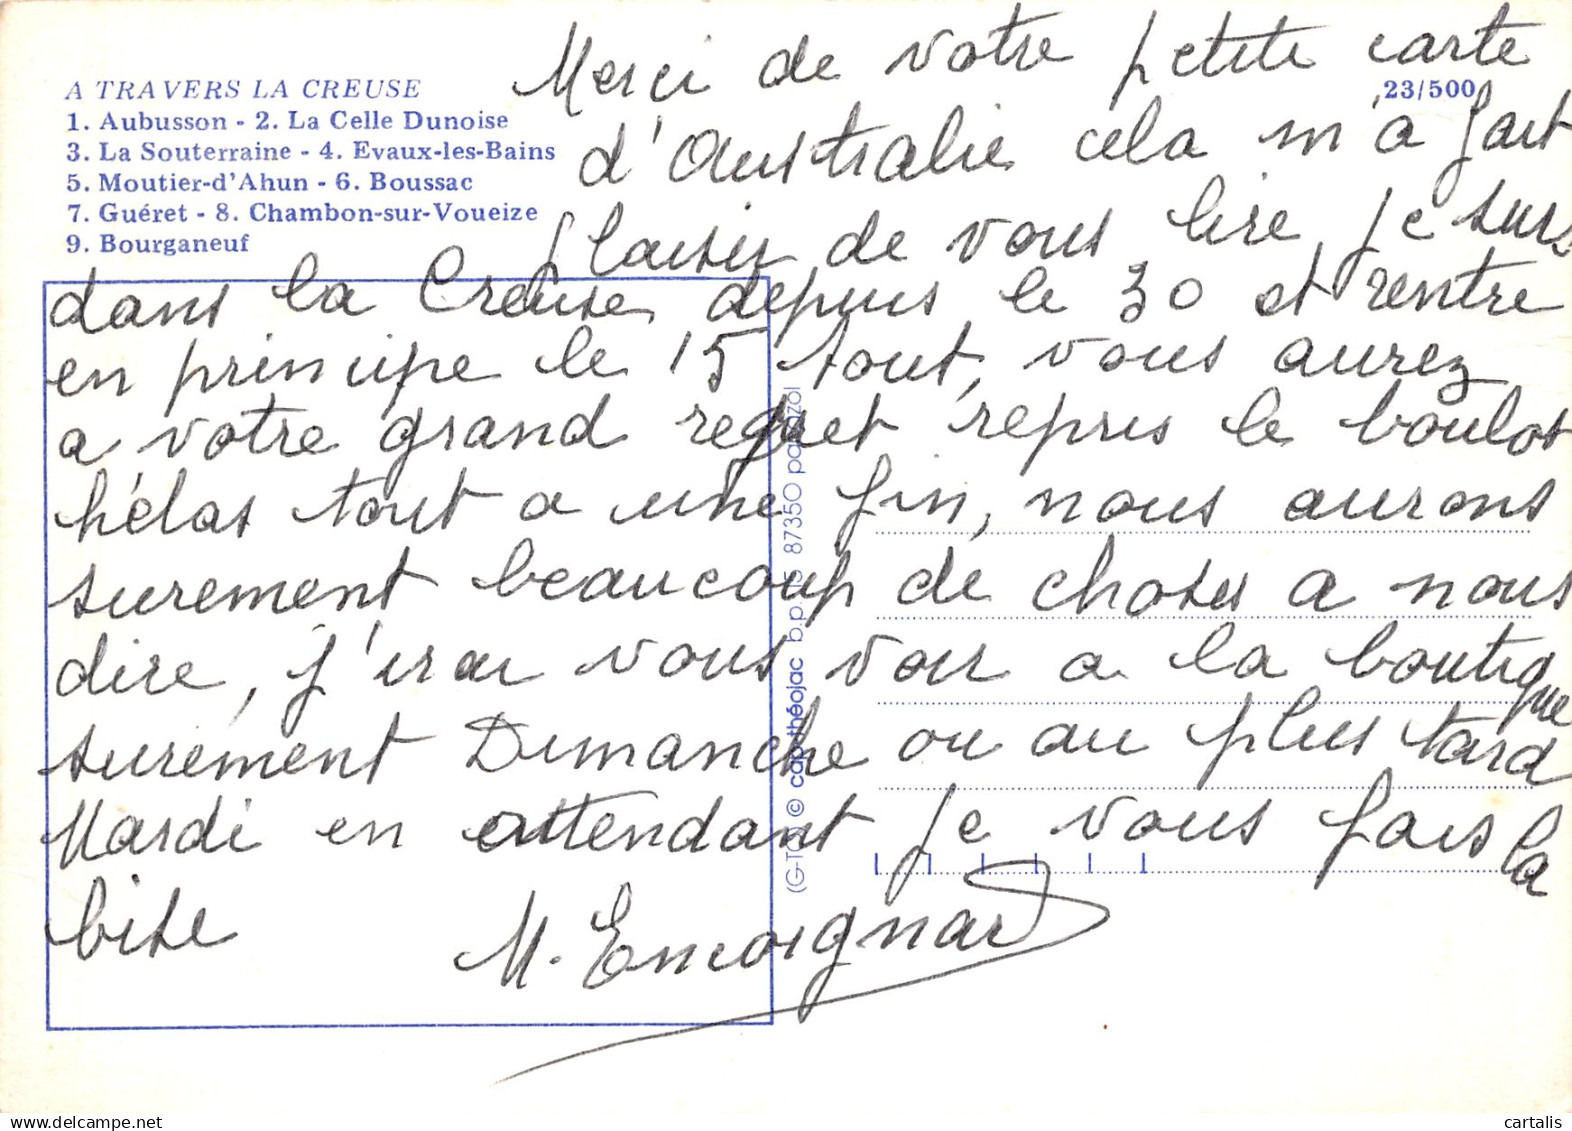 A TRAVERS LA CREUSE
1. Aubusson - 2. La Celle Dunoise
3. La Souterraine - 4. Evaux-les-Bains
5. Moutier-d'Ahun - 6. Boussac
7. Guéret - 8. Chambon-sur-Voueize
9. Bourganeuf
23/500
Merci de votre petite carte
d'Australie cela m'a fait
plaisir de vous lire, je suis
dans la Creuse, depuis le 30 et rentre
en principe le 15 Aout, vous aurez
a votre grand regret repris le boulot
hélas tout a une fin, nous aurons
surement beaucoup de choses a nous
dire, j'irai vous voir a la boutique
surement Dimanche ou au plus tard
Mardi en attendant je vous fais la
bise
M. Encoignard
(G-T © cap-théojac b.p. 15 87350 panazol
cartalis